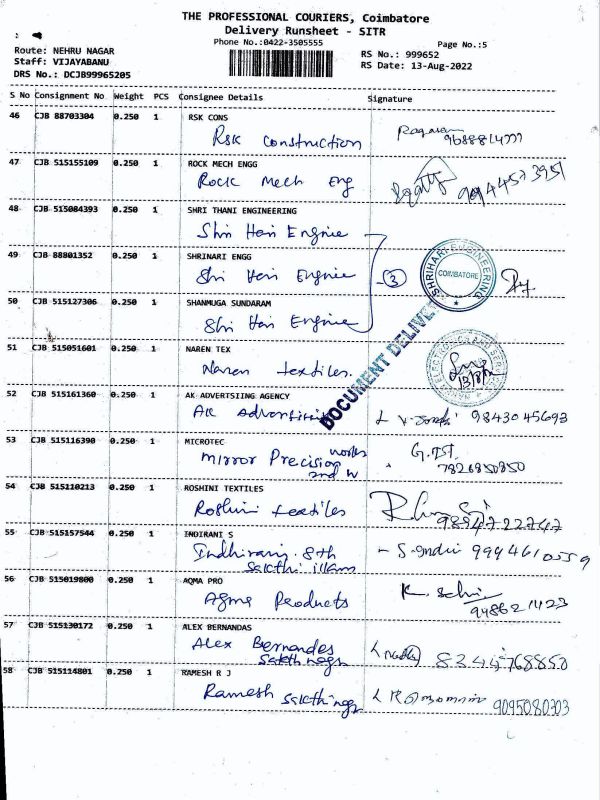 THE PROFESSIONAL COURIERS, Coimbatore
Delivery Runsheet - SITR
Phone No.:0422-3505555
Page No.:5
Route: NEHRU NAGAR
Staff: VIJAYABANU
DRS No.: DCJB99965205
RS No.: 999652
RS Date: 13-Aug-2022
S No Consignment No Weight PCS Consignee Details Signature
46 CJB 88703304 0.250 1 RSK CONS
RSK Construction
47 CJB 515155109 0.250 1 ROCK MECH ENGG
Rock Mech Eng 9944573951
48 CJB 515084393 0.250 1 SHRI THANI ENGINEERING
Shri Hari Engnie
49 CJB 88801352 0.250 1 SHRINARI ENGG
Shri Hari Engnie (3)
SHRIHARI ENGINEERING
COIMBATORE
50 CJB 515127306 0.250 1 SHANMUGA SUNDARAM
Shri Hari Engnie
DOCUMENT DELIVE
51 CJB 515051601 0.250 1 NAREN TEX
Naren textiles.
13/8/22
52 CJB 515161360 0.250 1 AK ADVERTSIING AGENCY
AK Advertising 9843045693
53 CJB 515116390 0.250 1 MICROTEC
Mirror Precision works 7826850850
54 CJB 515110213 0.250 1 ROSHINI TEXTILES
Roshini textiles 9894722747
55 CJB 515157544 0.250 1 INDIRANI S
Indhirani. 8th - S. Indir 9994610559
Sakthi illam
56 CJB 515019800 0.250 1 AQMA PRO
Aqma Products
57 CJB 515130172 0.250 1 ALEX BERNANDAS
Alex Bernandes 8344768850
Sakthi nagr
58 CJB 515114801 0.250 1 RAMESH R J
Ramesh Sakthi nagr 9095080703